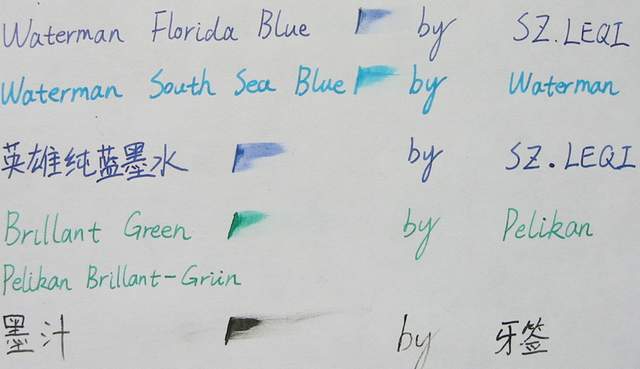 Waterman Florida Blue by SZ.LEQI
Waterman South Sea Blue by Waterman
英雄纯蓝墨水 by SZ.LEQI
Brillant Green by Pelikan
Pelikan Brillant-Grün
墨汁 by 牙签